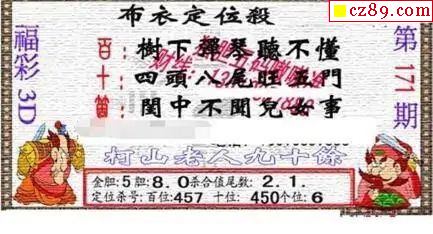 cz89.com
布衣定位殺
福彩3D
第171期
百:樹下彈琴聽不懂
十:四頭八尾旺五門
個:閨中不聞兒女事
柯山老人九十條
金胆:5胆:8.0杀合值尾数:2.1.
定位杀号:百位:457 十位:450个位:6